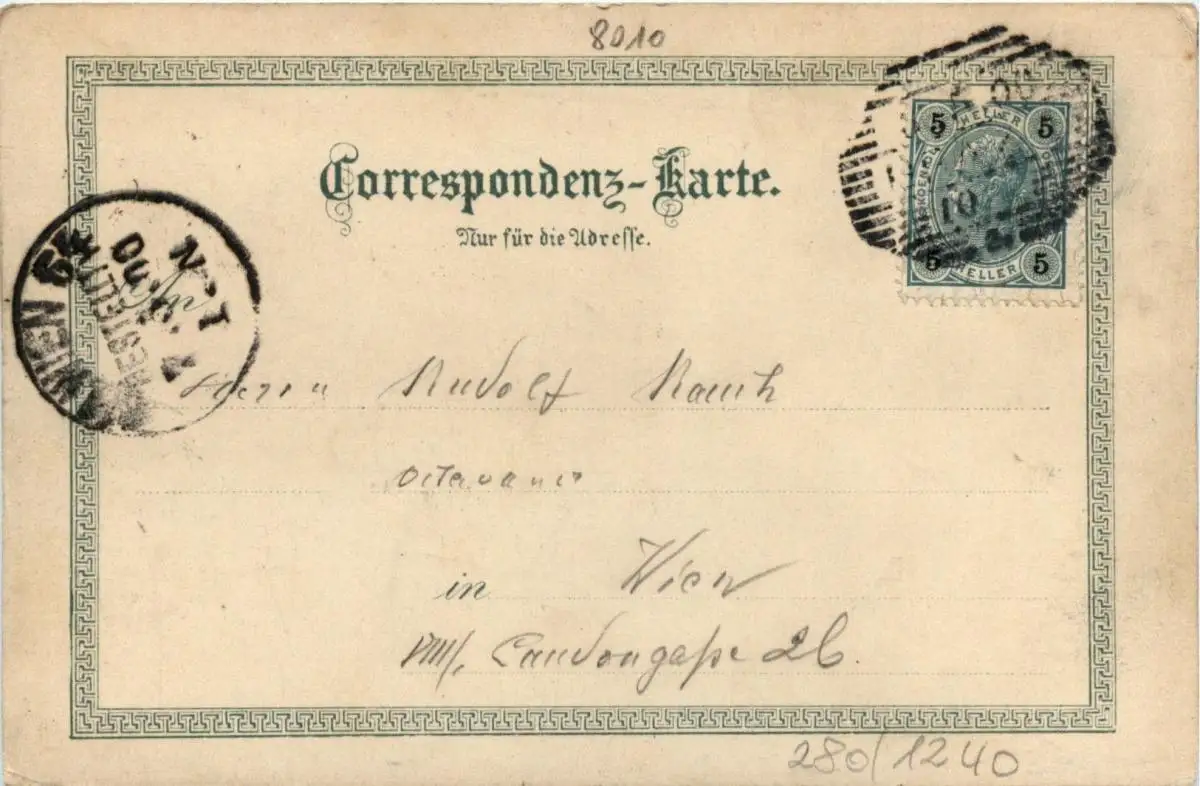 8010
Correspondenz-Karte.
Nur für die Adresse.
5 HELLER 5
10
5 HELLER 5
WIEN 64
BESTELLT
An
Herrn Rudolf Rauch
Octavaner
in Wien
VIII/, Laudongaße 26.
280/1240